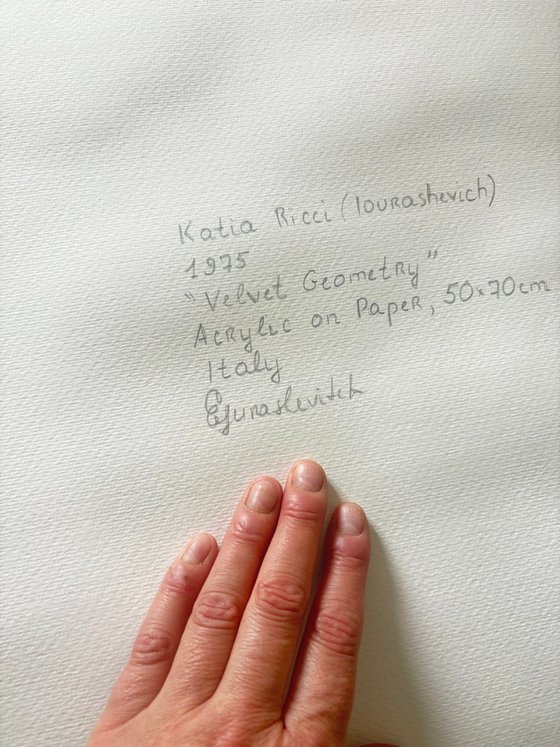 Katia Ricci (Iourashevich)
1975
"Velvet Geometry"
Acrylic on Paper, 50x70cm
Italy